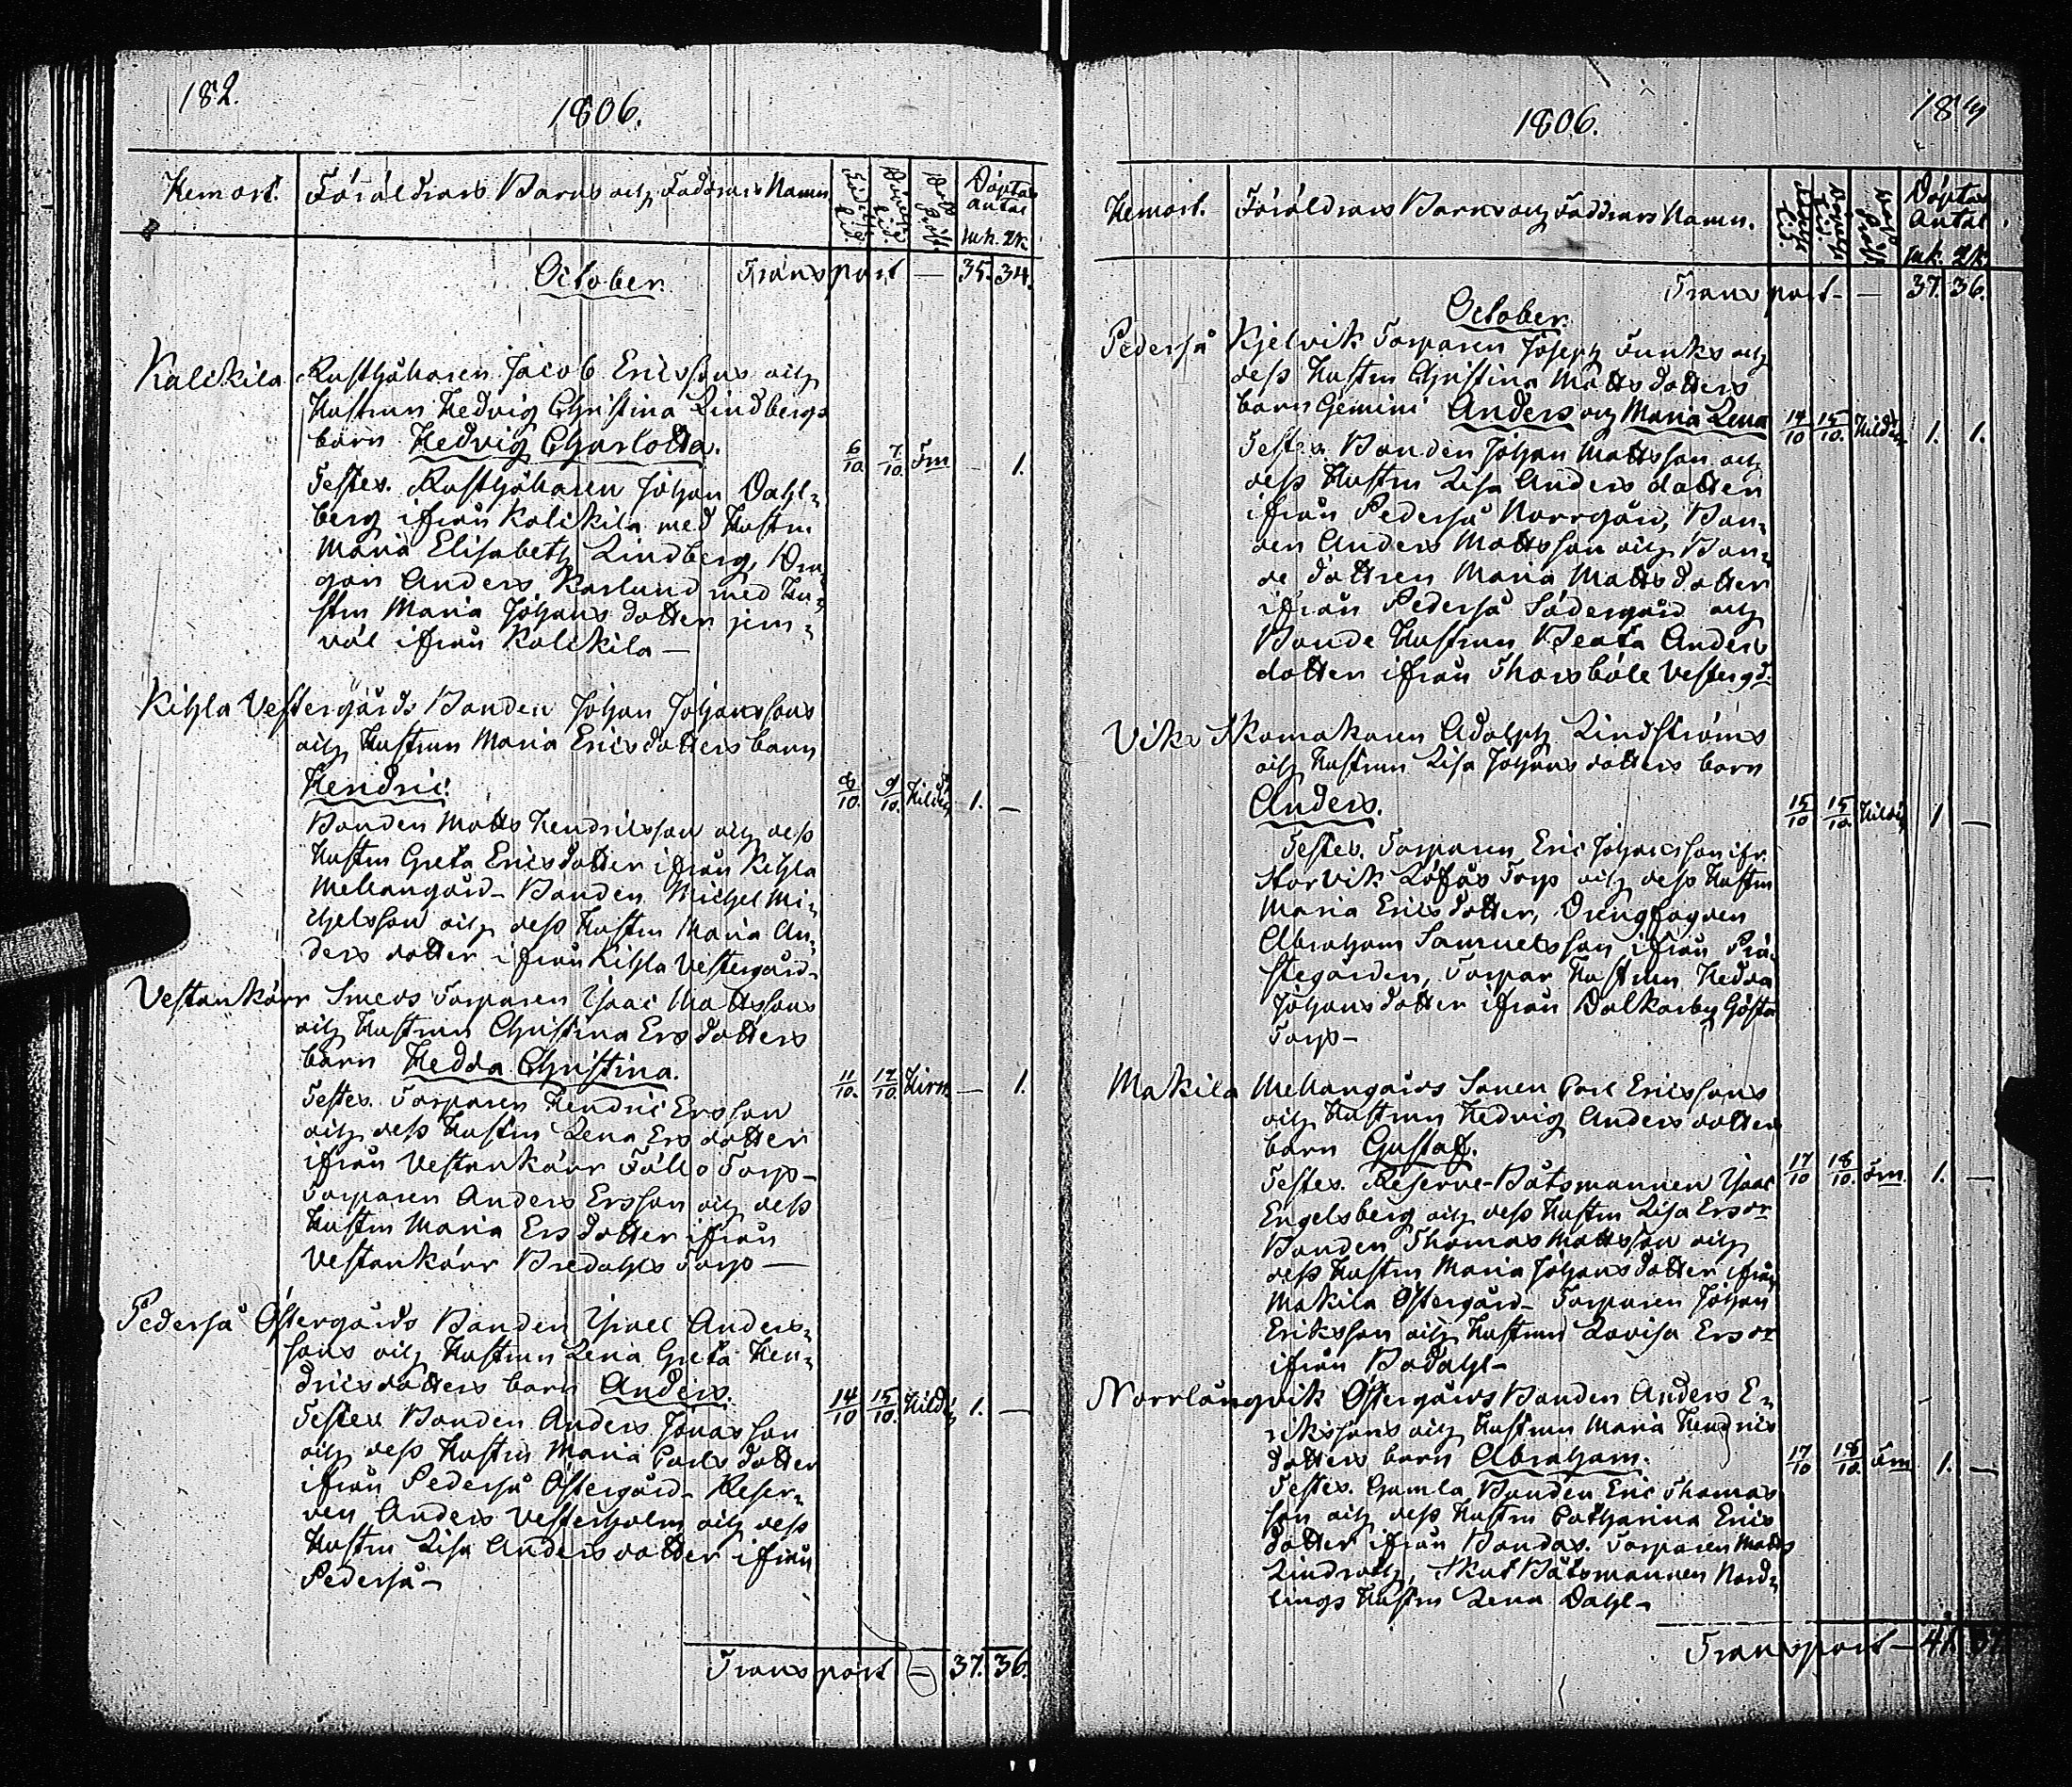 182.
1806.
Hemort. Föräldrars Barns och Faddrars Namn
Födelse tid. Döpelse tid. Döptas antal
mk. qk
October. Transport — 35. 34.
Kalikila Rusthållaren Jacob Ericssons och
Hustrun Hedvig Christina Lindbergs
barn Hedvig Charlotta. 6/10. 7/10. Fm — 1.
Testes. Rusthållaren Johan Dahl-
berg ifrån Kalikila med Hustru
Maria Elisabeth Lindberg, Dra-
gon Anders Karlund med Hu-
stru Maria Johans dotter jem-
väl ifrån Kalikila —
Kihla Vestergårds Bonden Johan Johanssons
och Hustrun Maria Ericsdotters barn
Hendric. 8/10. 9/10. Hildén 1. —
Bonden Matts Hendricsson och dess
Hustru Greta Ericsdotter ifrån Kihla
Mellangård – Bonden Michel Mi-
chelsson och dess Hustru Maria An-
ders dotter ifrån Kihla Vestergård –
Vestankärr Smeds Torparen Isaac Mattssons
och Hustrun Christina Ersdotters
barn Hedda Christina. 11/10. 12/10. Hirn. — 1.
Testes. Torparen Hendric Ersson
och dess Hustru Lena Ersdotter
ifrån Vestankärr Fälls Torp –
Torparen Anders Ersson och dess
Hustru Maria Ersdotter ifrån
Vestankärr Bredahls Torp —
Pederså Östergårds Bonden Israel Anders-
sons och Hustrun Lena Greta Hen-
dricsdotters barn Anders. 14/10 15/10. Hildén 1. —
Testes Bonden Anders Jönasson
och dess Hustru Maria Carlsdotter
ifrån Pederså Östergård – Reser-
ven Anders Vesterholm och dess
Hustru Lisa Andersdotter ifrån
Pederså –
Transport — 37. 36.
1806.
Hemort. Föräldrars Barns och Faddrars Namn.
Döptas antal
mk. qk
Transport — 37. 36.
October.
Pederså Kjelvik Torparen Joseph Funks och
dess Hustru Christina Mattsdotters
barn Gemini Anders och Maria Lena 14/10 15/10. Hildén 1. 1.
Testes. Bonden Johan Mattsson och
dess Hustru Lisa Anders dotter
ifrån Pederså Norrgård, Bon-
den Anders Mattsson och Bon-
de dottren Maria Mattsdotter
ifrån Pederså Södergård och
Bonde Hustrun Beata Anders
dotter ifrån Thorsböle Vestergd.
Viks Skomakaren Adolph Lindströms
och Hustrun Lisa Johansdotters barn
Anders. 15/10 15/10. Hildén 1 —
Testes. Torparen Eric Johansson ifr.
Storvik Löfås Torp och dess Hustru
Maria Ericsdotter, Drengfogden
Abraham Samuelsson ifrån Prä-
stegården, Torpar Hustrun Hedda
Johansdotter ifrån Dalkarby Gösta
Torp –
Makila Mellangårds Sonen Carl Ericssons
och Hustrun Hedvig Anders dotters
barn Gustaf. 17/10 18/10. Fm. 1. —
Testes. Reserve-Båtsmannen Isaac
Engelsberg och dess Hustru Lisa Ersdr
Bonden Thomas Mattsson och
dess Hustru Maria Johansdotter ifrån
Makila Östergård – Torparen Johan
Eriksson och Hustrun Lovisa Ersdr
ifrån Bodahl –
Norrlångvik Östergårds Bonden Anders E-
rikssons och Hustrun Maria Hendrics
dotters barn Abraham. 17/10 18/10. Fm 1. —
Testes. Gamla Bonden Eric Thomas
son och dess Hustru Catharina Erics
dotter ifrån Bondas. Torparen Matts
Lindroth, Skut Båtsmannen Nord-
lings Hustru Lena Dahl –
Transport — 41. 37